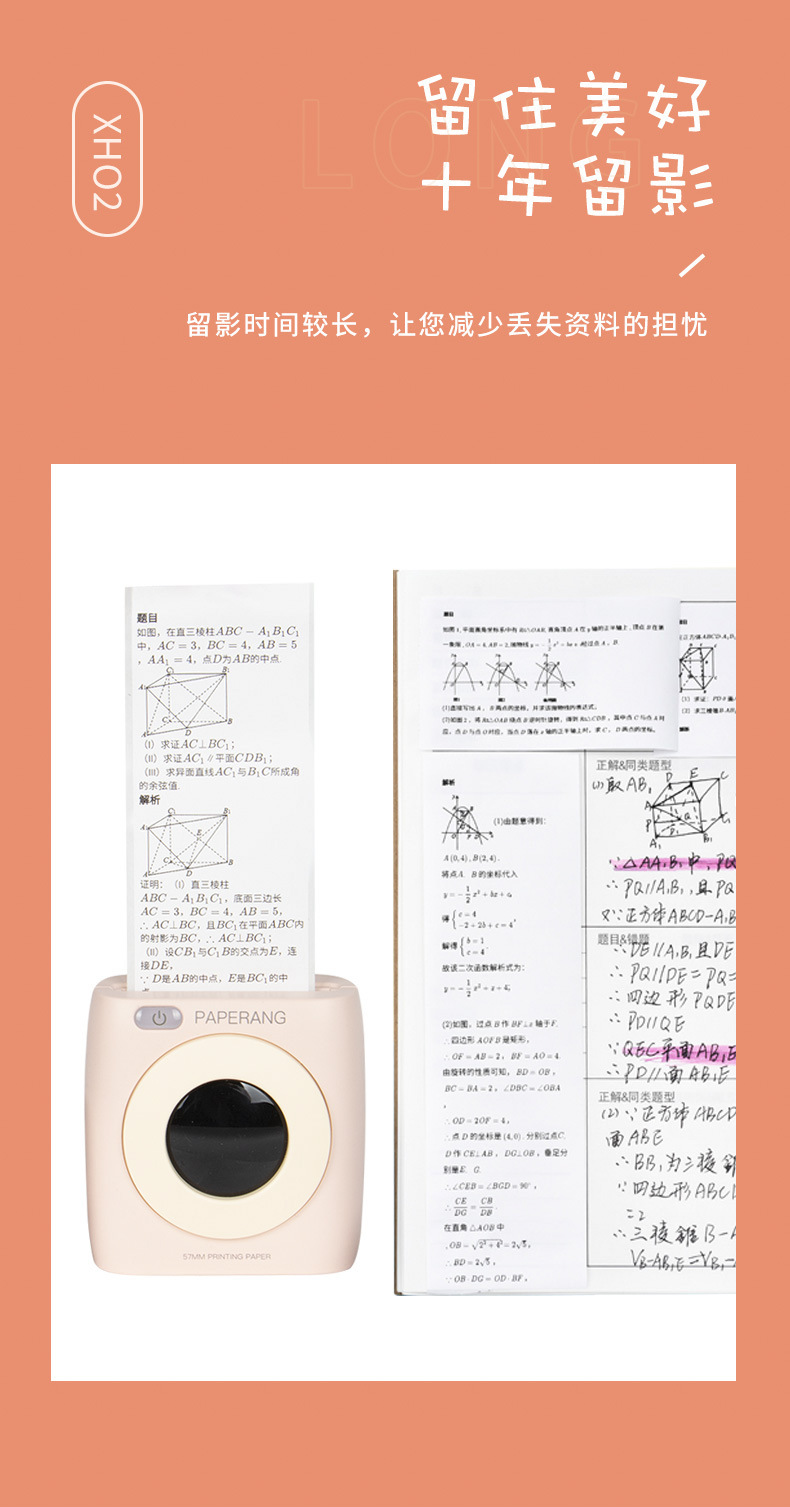 XHO2
LONG
留住美好
十年留影
留影时间较长，让您减少丢失资料的担忧
题目
如图，在直三棱柱ABC − A₁B₁C₁
中，AC = 3，BC = 4，AB = 5
，AA₁ = 4，点D为AB的中点.
(Ⅰ) 求证AC⊥BC₁；
(Ⅱ) 求证AC₁ // 平面CDB₁；
(Ⅲ) 求异面直线AC₁与B₁C所成角
的余弦值.
解析
证明：(Ⅰ) 直三棱柱
ABC − A₁B₁C₁，底面三边长
AC = 3，BC = 4，AB = 5，
∴ AC⊥BC，且BC₁在平面ABC内
的射影为BC，∴ AC⊥BC₁；
(Ⅱ) 设CB₁与C₁B的交点为E，连
接DE，
∵ D是AB的中点，E是BC₁的中
PAPERANG
57MM PRINTING PAPER
题目
(1)直接写出A，B两点的坐标，并求该抛物线的表达式.
解析
(1)由题意得到：
A(0,4), B(2,4).
将点A、B的坐标代入
y=−1/2x²+bx+c,
得{c=4
−2+2b+c=4,
解得{b=1
c=4
故该二次函数解析式为：
y=−1/2x²+x+4;
(2)如图，过点B作BF⊥x轴于F.
∴四边形AOFB是矩形，
∴OF=AB=2，BF=AO=4.
由旋转的性质可知，BD=OB，
BC=BA=2，∠DBC=∠OBA
，
∴OD=2OF=4，
∴点D的坐标是(4,0). 分别过点C、
D作CE⊥AB，DG⊥OB，垂足分
别是E、G.
∴∠CEB=∠BGD=90°，
∴CE/DG=CB/DB.
在直角△AOB中
,OB=√2²+4²=2√5，
∴BD=2√5，
∵OB·DG=OD·BF，
正解&同类题型
(1)取AB₁
∵△AA₁B₁中，PQ
∴PQ//A₁B₁，且PQ
又∵正方体ABCD-A₁B
题目&错题
∴DE//A₁B₁且DE
∴PQ//DE=PQ=
∴四边形PQDE
∴PD//QE
∵QE⊂平面AB₁E
∴PD//面AB₁E
正解&同类题型
(2)∵正方体ABCD
面ABE
∴BB₁为三棱锥
∵四边形ABC
=2
∴三棱锥B-A
VB-AB₁E=VB₁-